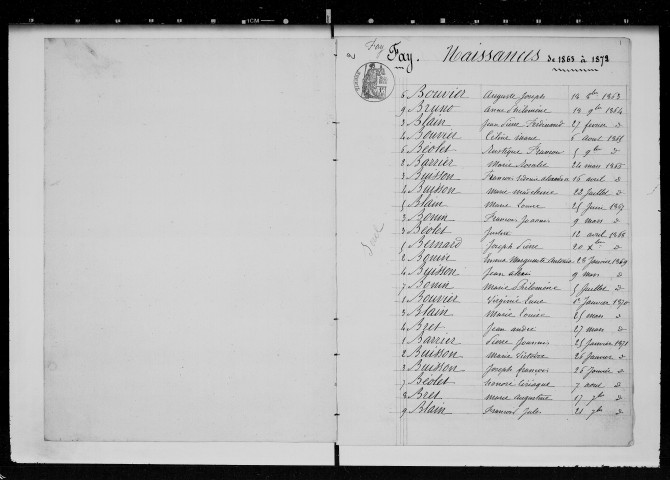 Fay
Fay. Naissances de 1863 à 1872
6 Bouvier Auguste Joseph 14 8bre 1863
9 Bruno Anne Philomène 18 9bre 1864
3 Blain Jean Pierre Ferdinand 27 février d
4 Bouvier Céline Marie 6 avril 1865
6 Béolet François 5 9bre d
2 Barrier Marie Rosalie 24 mars 1866
3 Buisson François 16 avril d
4 Buisson Marie 22 juillet d
5 Blain Marie Louise 25 juin 1867
3 Bonin François Joannès 9 mars d
3 Béolet 12 avril 1868
5 Bernard Joseph Pierre 20 Xbre d
2 Bonin Emma Marguerite Antonia 28 janvier 1869
4 Buisson Jean 9 mars d
7 Bonin Marie Philomène 5 juillet d
1 Bouvier Virginie 1er janvier 1870
3 Blain Marie Louise 25 mars d
4 Bret Jean André 27 mars d
1 Barrier Pierre Joannès 25 janvier 1871
2 Buisson Marie 26 janvier d
3 Buisson Joseph François 26 janvier d
7 Béolet 7 avril d
8 Bret Marie Augustine 17 7bre d
9 Blain François Jules 21 7bre d